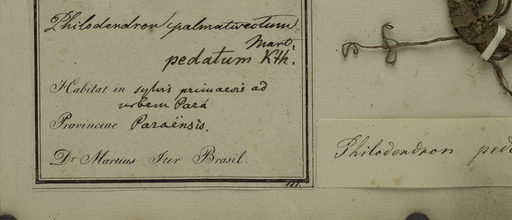 Philodendron palmatisectum
Mart.
pedatum Kth.
Habitat in sylvis primaevis ad
urbem Pará
Provinciae Paraënsis.
Dr. Martius Iter Brasil.
Philodendron peda